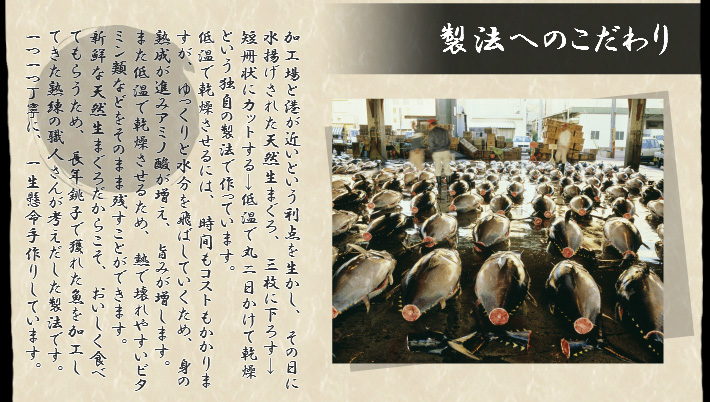 製法へのこだわり
加工場と港が近いという利点を生かし、その日に
水揚げされた天然生まぐろ、三枚に下ろす→
短冊状にカットする→低温で丸二日かけて乾燥
という独自の製法で作っています。
低温で乾燥させるには、時間もコストもかかりま
すが、ゆっくりと水分を飛ばしていくため、身の
熟成が進みアミノ酸が増え、旨みが増します。
また低温で乾燥させるため、熱で壊れやすいビタ
ミン類などをそのまま残すことができます。
新鮮な天然生まぐろだからこそ、おいしく食べ
てもらうため、長年銚子で獲れた魚を加工し
てきた熟練の職人さんが考えだした製法です。
一つ一つ丁寧に、一生懸命手作りしています。